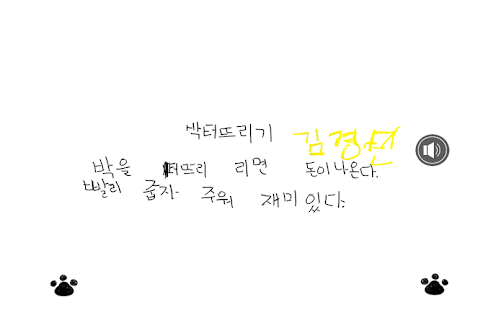 박터뜨리기 김경선
박을 터뜨리 리면 돈이나온다.
빨리 줍자 주워 재미있다.